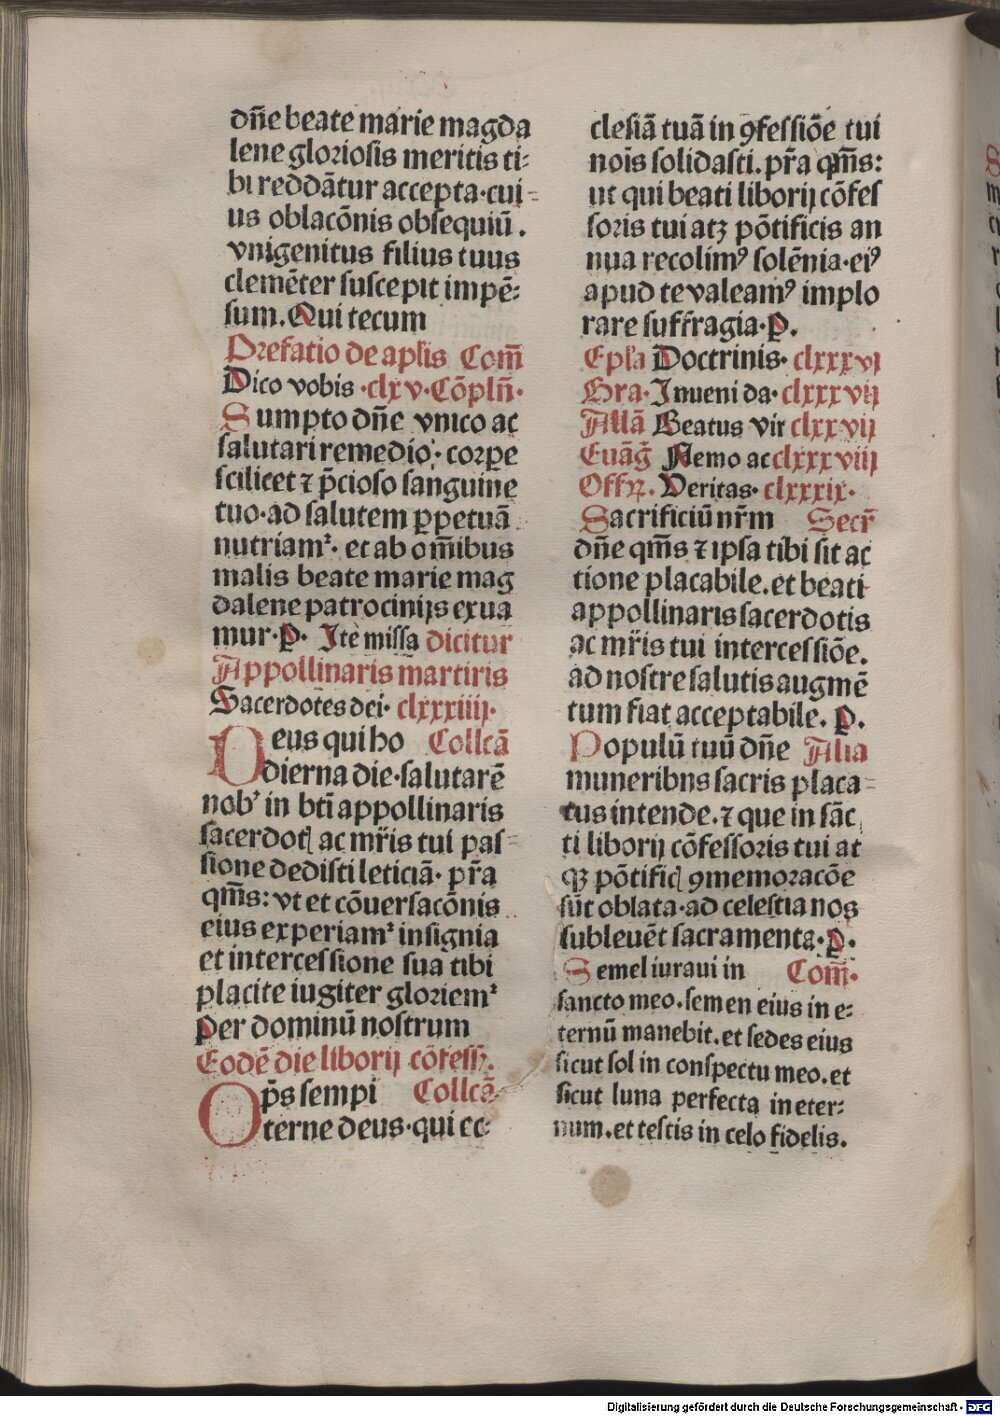 dn̄e beate marie magda
lene gloriosis meritis ti⸗
bi reddātur accepta·cui⸗
us oblacōnis obsequiū.
vnigenitus filius tuus
clemēter suscepit impē⸗
sum.Qui tecum
Prefatio de aplis Com̄
Dico vobis·clxv·Cōpln̄·
Sumpto dn̄e vnico ac
salutari remedio:corpe
scilicet ⁊ p̄cioso sanguine
tuo·ad salutem ꝑpetuā
nutriamꝛ·et ab om̄ibus
malis beate marie mag
dalene patrocinijs exua
mur·P·Itē missa dicitur
Appollinaris martiris
Sacerdotes dei·clxxxiiij·
Deus qui ho Collcā
dierna die·salutarē
nobꝰ in bt̄i appollinaris
sacerdotꝭ ac mr̄is tui pas⸗
sione dedisti leticiā·pr̄a
qm̄s:vt et cōuersacōnis
eius experiamꝛ insignia
et intercessione sua tibi
placite iugiter gloriemꝛ
Per dominū nostrum
Eodē die liborij cōfess̄.
Op̄s sempi Collcā
terne deus·qui ec⸗
clesiā tuā in ꝯfessiōe tui
nois̄ solidasti.pr̄a qm̄s:
ut qui beati liborij cōfes
soris tui atꝫ pōtificis an
nua recolimꝰ solēnia·eiꝰ
apud te valeamꝰ implo
rare suffragia·P.
Epla Doctrinis·clxxxvj
Gra·Inueni da·clxxxvij
Allā Beatus vir clxxvij
Euāḡ Nemo ac clxxxviij
Offꝝ.Veritas·clxxxix·
Sacrificiū nr̄m Secr̄
dn̄e qm̄s ⁊ ipsa tibi sit ac
tione placabile.et beati
appollinaris sacerdotis
ac mr̄is tui intercessiōe.
ad nostre salutis augmē
tum fiat acceptabile.P.
Populū tuū dn̄e Alia
muneribns sacris placa⸗
tus intende.⁊ que in sāc
ti liborij cōfessoris tui at
qꝫ pōtificꝭ ꝯmemoracōe
sūt oblata·ad celestia nos
subleuēt sacramenta·P.
Semel iuraui in Com̄·
sancto meo.semen eius in e⸗
ternū manebit.et sedes eius
sicut sol in conspectu meo.et
sicut luna perfecta in eter⸗
num.et testis in celo fidelis.
Digitalisierung gefördert durch die Deutsche Forschungsgemeinschaft - DFG